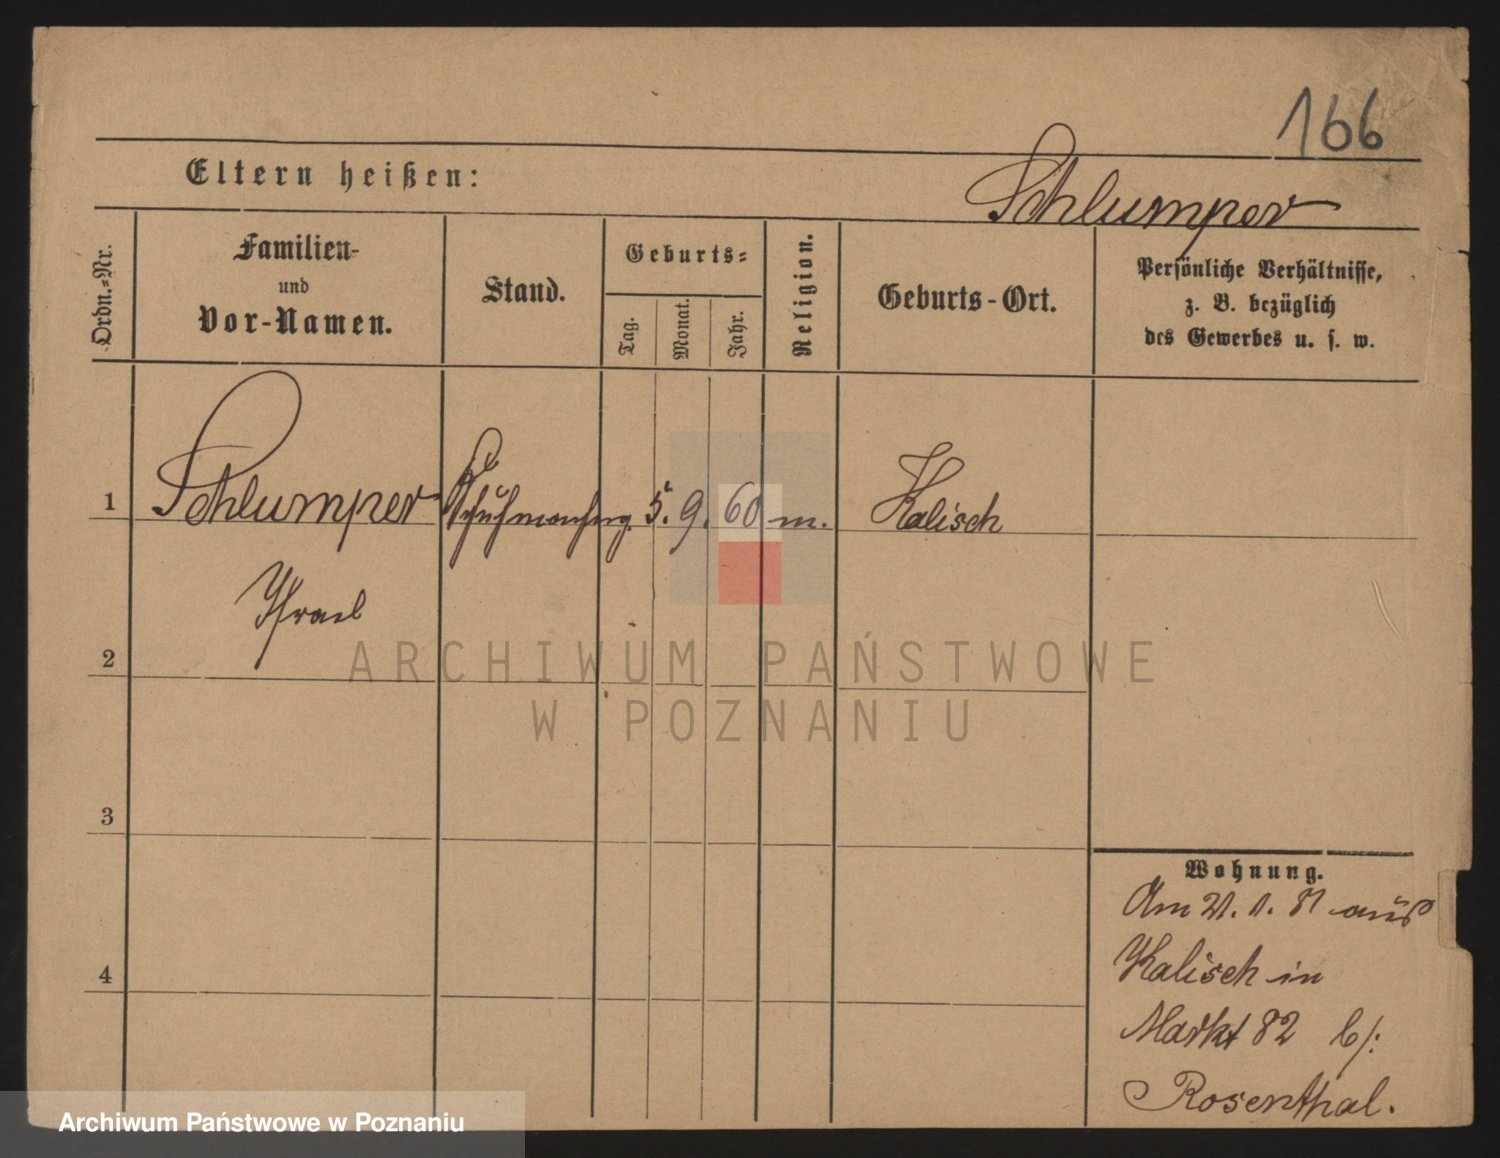 166
Eltern heißen:
Schlumper
Ordn.-Nr.
Familien-
und
Vor-Namen.
Stand.
Geburts-
Tag.
Monat.
Jahr.
Religion.
Geburts-Ort.
Persönliche Verhältnisse,
z. B. bezüglich
des Gewerbes u. s. w.
1 Schlumper 5. 9. 60 m. Kalisch
Israel
2
ARCHIWUM PAŃSTWOWE
W POZNANIU
3
Wohnung.
Am 21. 1. 81 aus
Kalisch in
4
Markt 82 b/:
Rosenthal.
Archiwum Państwowe w Poznaniu